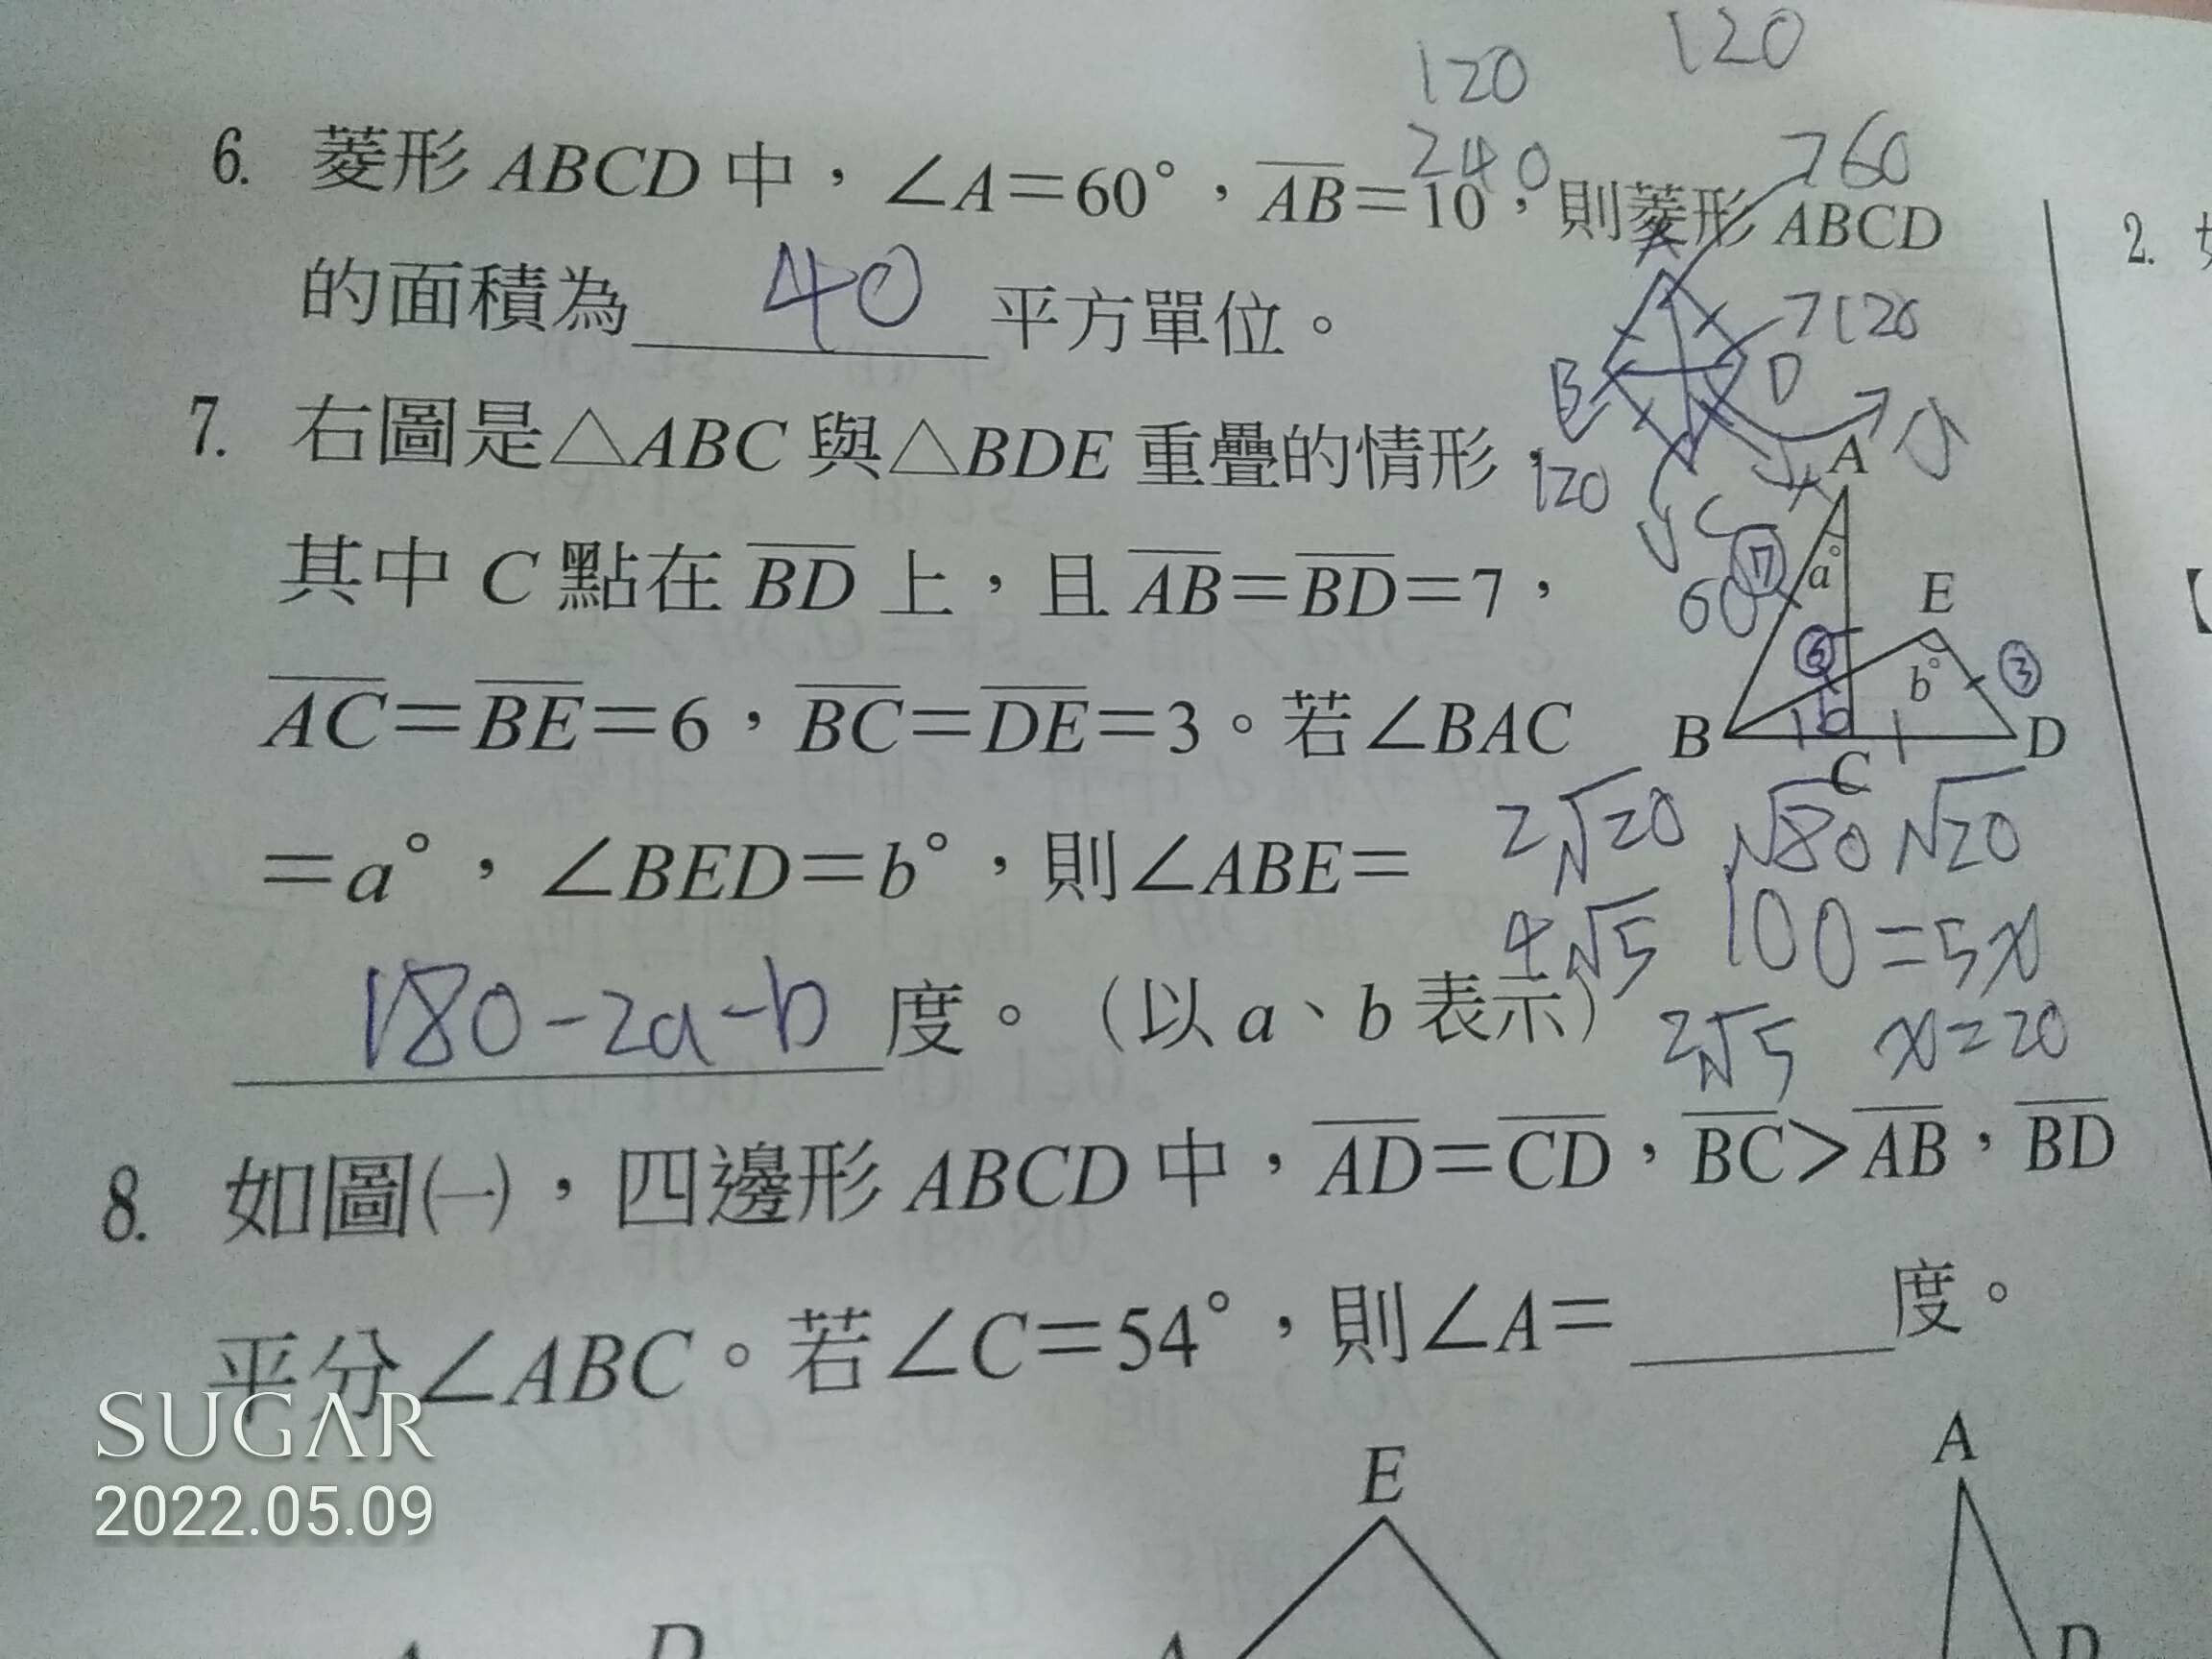 120
120
240
760
6. 菱形 ABCD 中，∠A＝60°，AB＝10，則菱形 ABCD
的面積為 40 平方單位。
A
7120
B
D
7. 右圖是△ABC 與△BDE 重疊的情形，
120
60
C
其中 C 點在 BD 上，且 AB＝BD＝7，
AC＝BE＝6，BC＝DE＝3。若∠BAC
＝a°，∠BED＝b°，則∠ABE＝
180-2a-b 度。（以 a、b 表示）
A
7
a°
E
6
b°
3
B
b
C
D
2√20 √80 √20
4√5 100=5x
2√5 x=20
8. 如圖㈠，四邊形 ABCD 中，AD＝CD，BC＞AB，BD
平分∠ABC。若∠C＝54°，則∠A＝ 度。
2.
【
SUGAR
2022.05.09
E
A
A
D
A
D